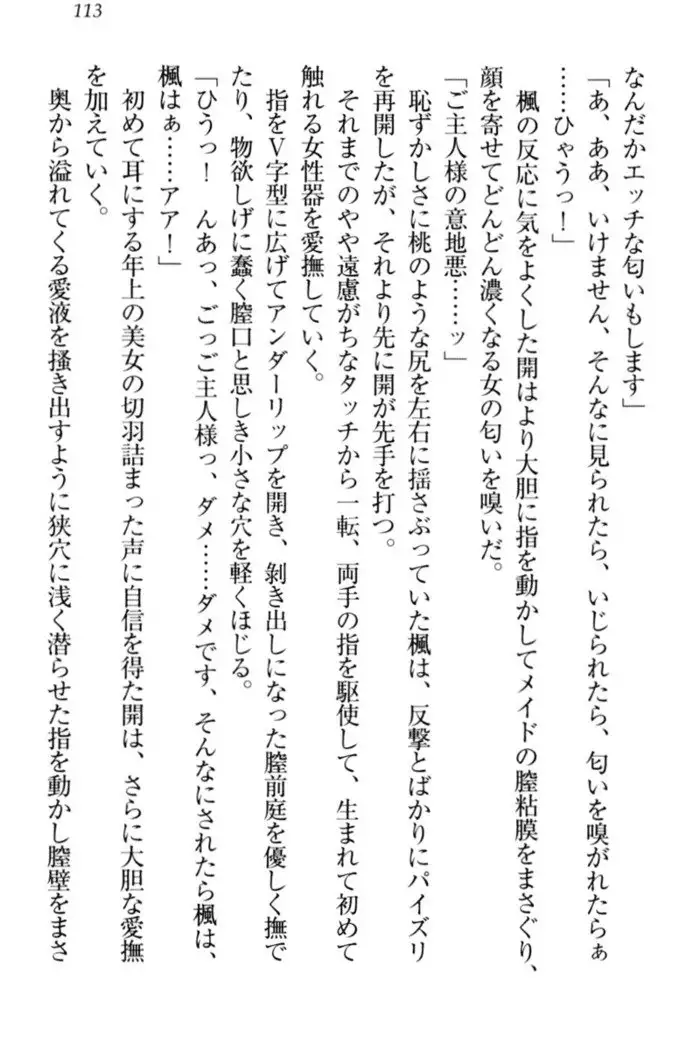 113
なんだかエッチな匂いもします」
「あ、ああ、いけません、そんなに見られたら、いじられたら、匂いを嗅がれたらぁ
……ひゃうっ！」
楓の反応に気をよくした開はより大胆に指を動かしてメイドの膣粘膜をまさぐり、
顔を寄せてどんどん濃くなる女の匂いを嗅いだ。
「ご主人様の意地悪……ッ」
恥ずかしさに桃のような尻を左右に揺さぶっていた楓は、反撃とばかりにパイズリ
を再開したが、それより先に開が先手を打つ。
それまでのやや遠慮がちなタッチから一転、両手の指を駆使して、生まれて初めて
触れる女性器を愛撫していく。
指をＶ字型に広げてアンダーリップを開き、剝き出しになった膣前庭を優しく撫で
たり、物欲しげに蠢く膣口と思しき小さな穴を軽くほじる。
「ひうっ！　んあっ、ごっご主人様っ、ダメ……ダメです、そんなにされたら楓は、
楓はぁ……アア！」
初めて耳にする年上の美女の切羽詰まった声に自信を得た開は、さらに大胆な愛撫
を加えていく。
奥から溢れてくる愛液を掻き出すように狭穴に浅く潜らせた指を動かし膣壁をまさ